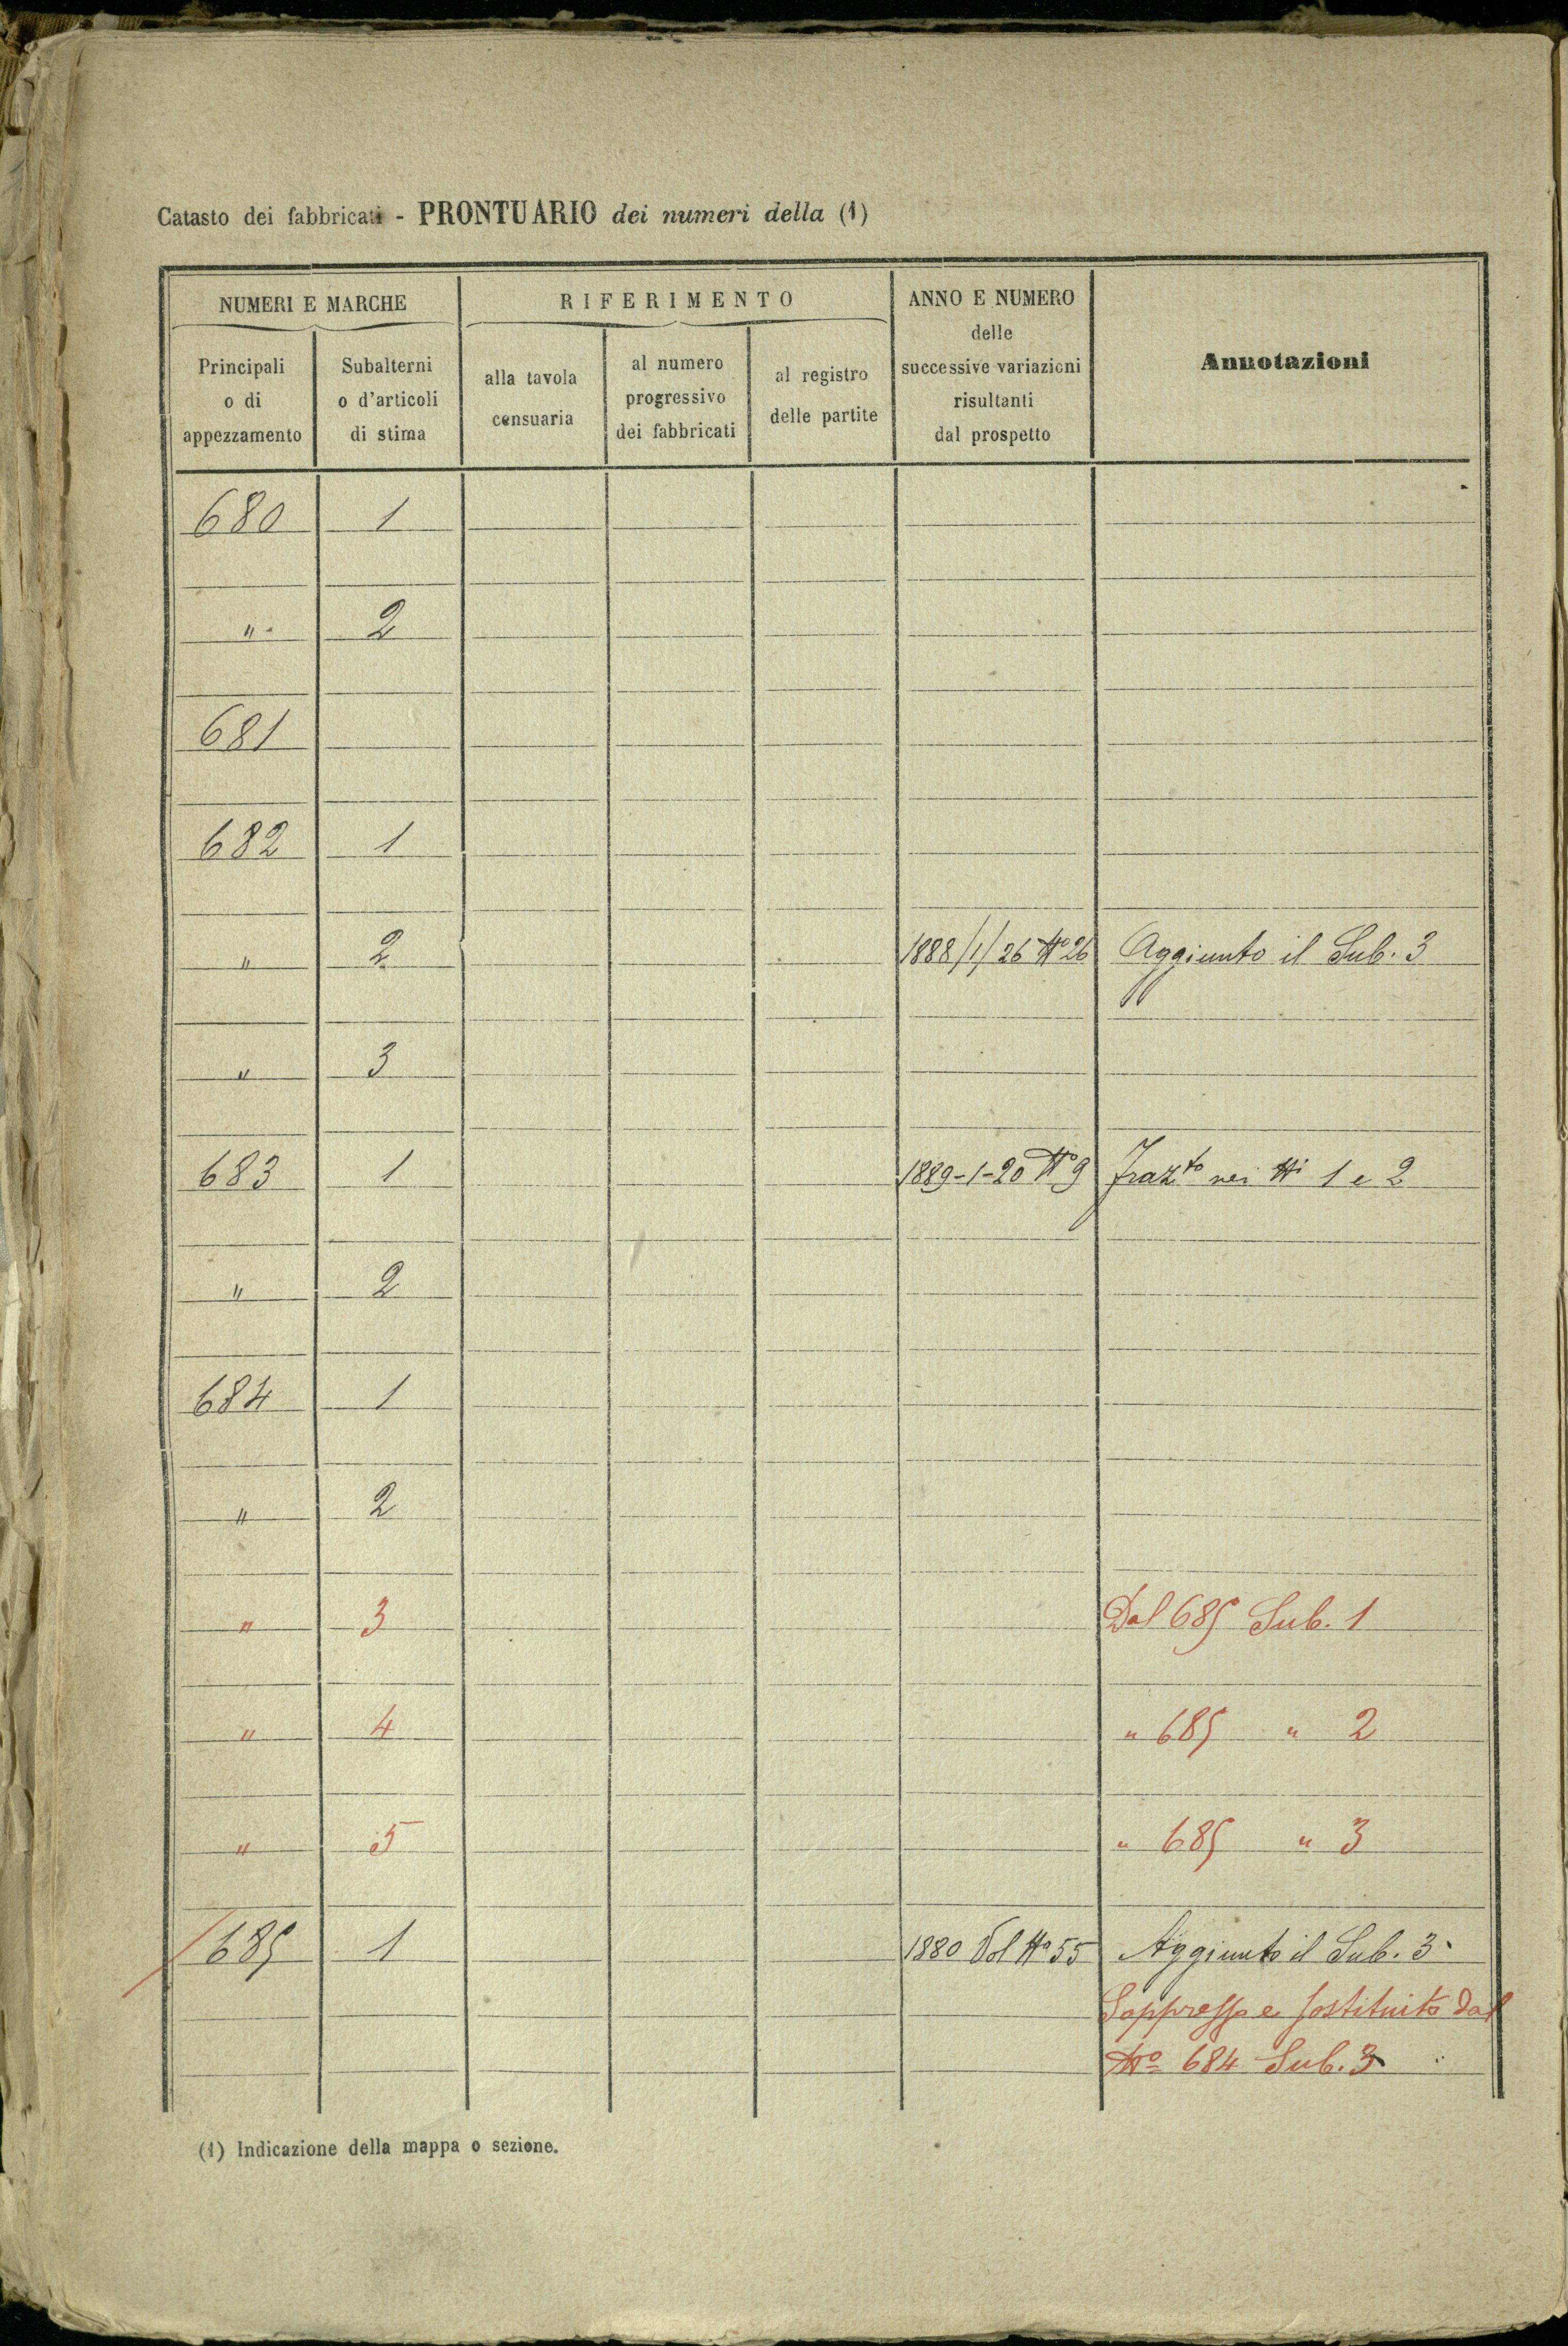 Catasto dei fabbricati - PRONTUARIO dei numeri della (1)
NUMERI E MARCHE
RIFERIMENTO
ANNO E NUMERO
delle
successive variazioni
risultanti
dal prospetto
Annotazioni
Principali
o di
appezzamento
Subalterni
o d'articoli
di stima
alla tavola
censuaria
al numero
progressivo
dei fabbricati
al registro
delle partite
680 1
" 2
681
682 1
" 2 1888/1/26 No 26 Aggiunto il Sub. 3
" 3
683 1 1889-1-20 No 9 Frazto nei Ni 1 e 2
" 2
684 1
" 2
" 3 Dal 685 Sub. 1
" 4 " 685 " 2
" 5 " 685 " 3
685 1 1880 Vol No 55 Aggiunto il Sub. 3
Soppresso e sostituito dal
No 684 Sub. 3
(1) Indicazione della mappa o sezione.